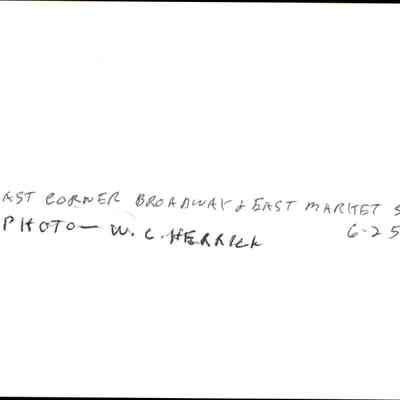 AST CORNER BROADWAY & EAST MARKET S
PHOTO— W. C. HERRICK 6-25